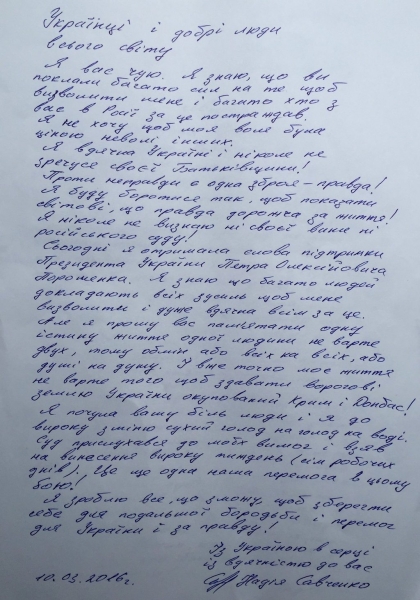 Українці і добрі люди
всього світу
Я вас чую. Я знаю, що ви
поклали багато сил на те щоб
визволити мене і багато хто з
вас в Росії за це постраждав.
Я не хочу щоб моя воля була
ціною неволі інших.
Я вдячна Україні і ніколе не
зречуся своєї Батьківщини!
Проти неправди є одна зброя – правда!
Я буду боротися так, щоб показати
світові, що правда дорожча за життя!
Я ніколе не визнаю ні своєї вини ні
російського суду!
Сьогодні я отримала слова підтримки
Президента України Петра Олексійовича
Порошенка. Я знаю що багато людей
докладають всіх зусиль щоб мене
визволити і дуже вдячна всім за це.
Але я прошу вас пам'ятати одну
істину життя одної людини не варте
двух, тому обмін або всіх на всіх, або
душі на душу. І вже точно моє життя
не варте того щоб здавати ворогові
землю України окупований Крим і Донбас!
Я почула вашу біль люди і я до
вироку зміню сухий голод на голод на воді.
Суд прислухався до моїх вимог і взяв
на винесення вироку тиждень (сім робочих
днів). Це ще одна наша перемога в цьому
бою!
Я зроблю все, що зможу щоб зберегти
себе для подальшої бородьби і перемог
для України і за правду!
Із Україною в серці
із вдячністю до вас
10.03.2016г. Надія Савченко